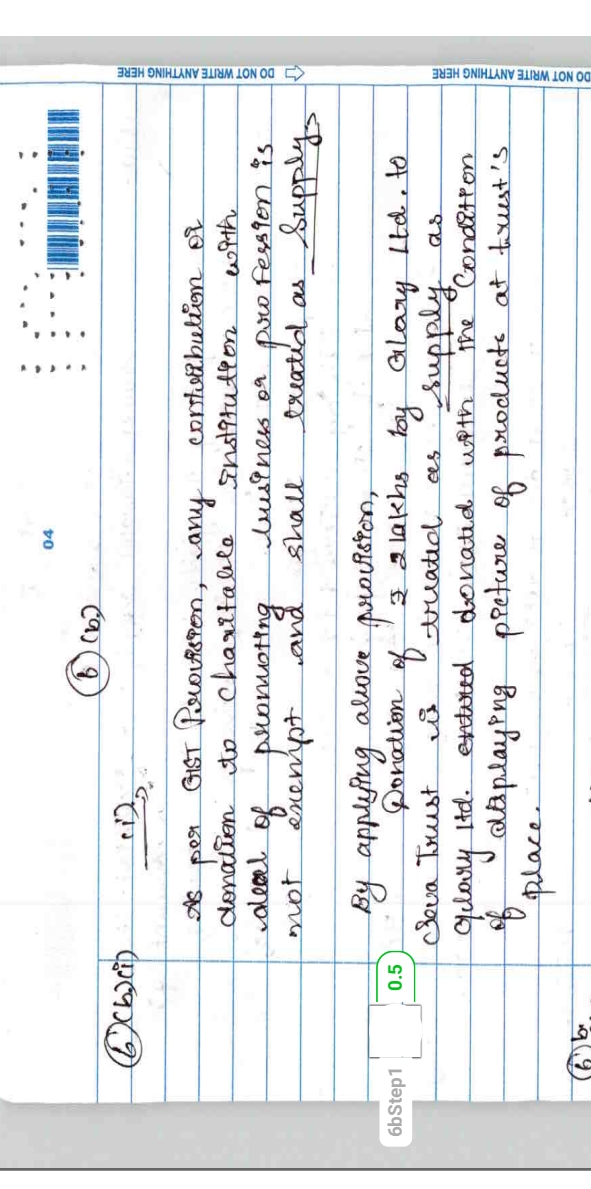 DO NOT WRITE ANYTHING HERE
DO NOT WRITE ANYTHING HERE
04
6 (b)
6 (b)(i)
(i)
As per GST Provision, any contribution or
donation to charitable institution with
of promoting business or profession is
not exempt and shall treated as supply
By applying above provision,
Donation of ₹ 2 lakhs by Glory Ltd. to
Seva Trust is treated as supply as
Glory Ltd. entered donated with the Condition
of displaying picture of products at trust's
place.
6bStep1 0.5
6 b